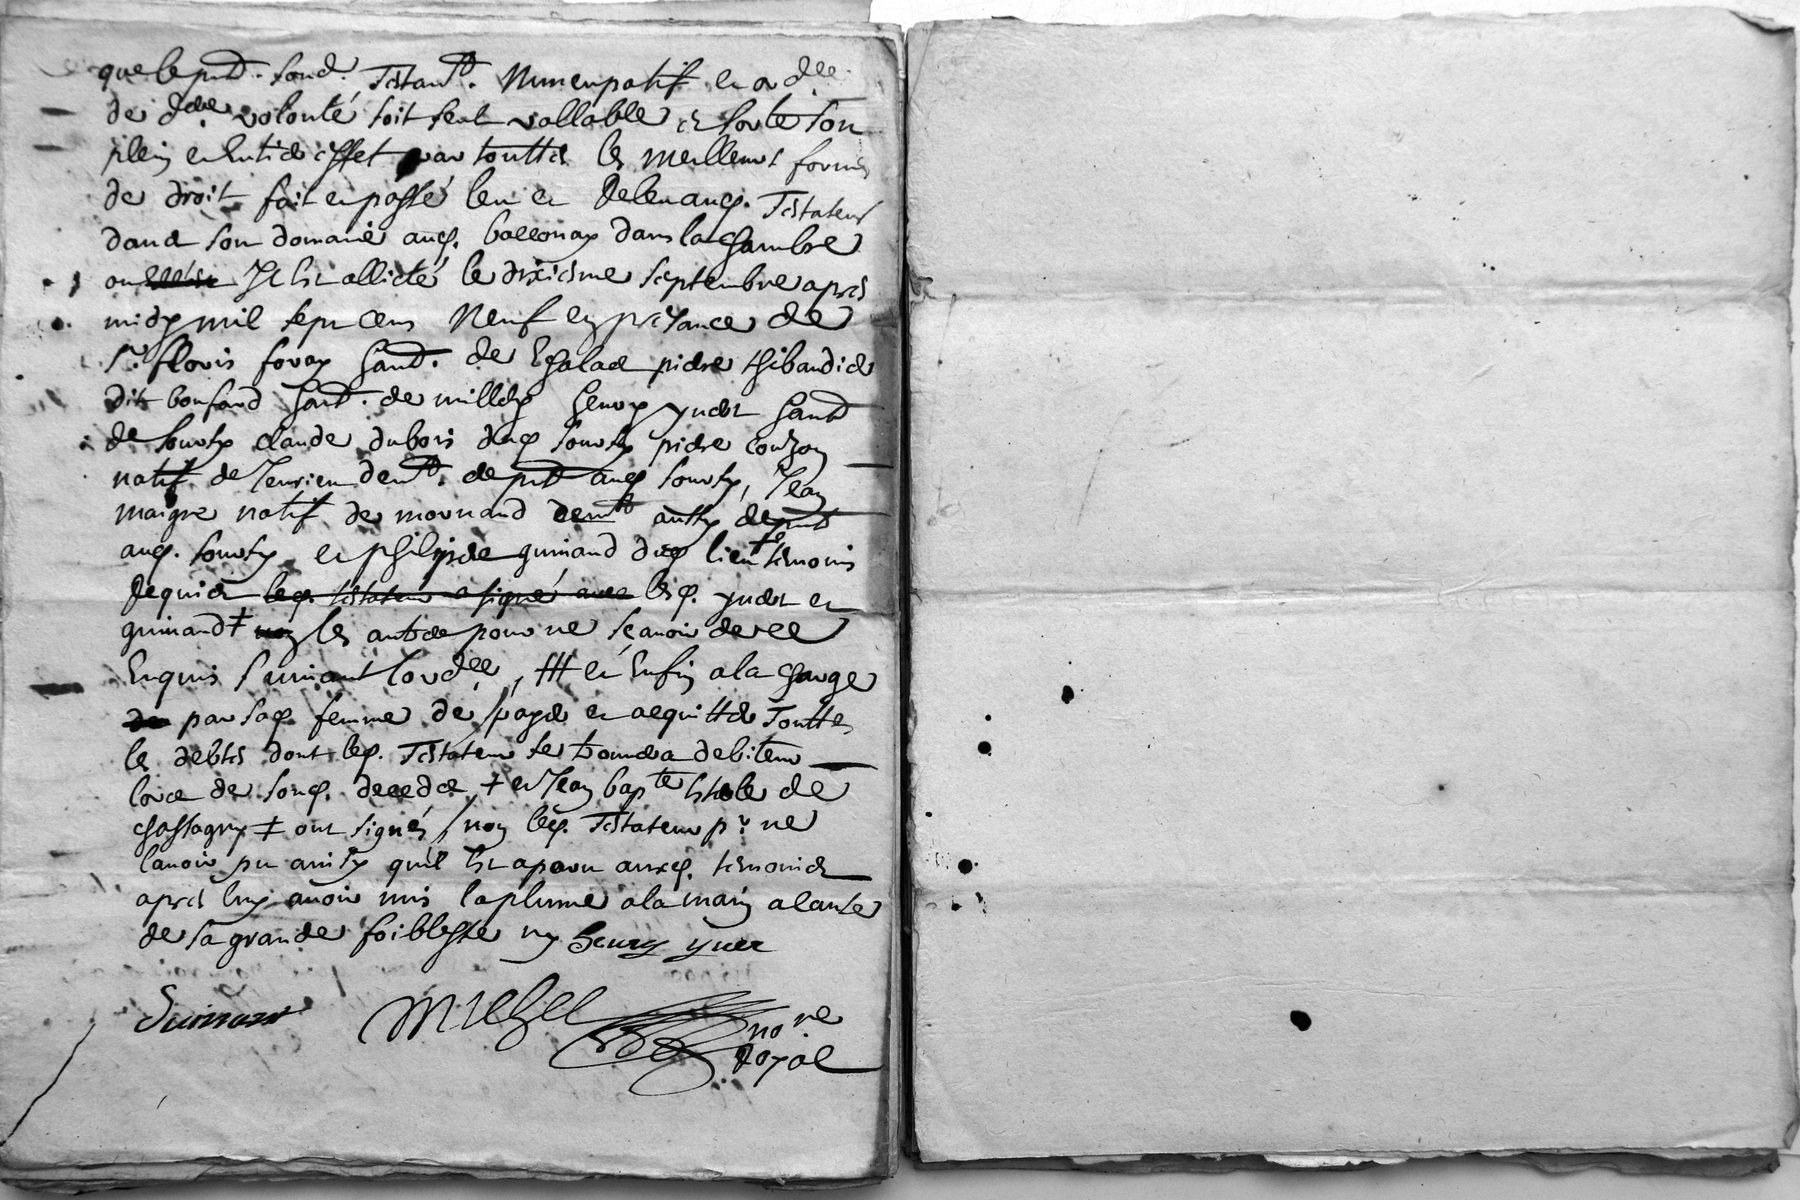 que le pnt. fond. Testamt. Nuncupatif et ordce.
de dre. volonté soit seul vallable et sorte son
plein et entier effet par touttes les meilleurs formes
de droit fait et passé leu et releu audt. Testateur
dans son domaine audt. dans la chambre
ou il est allicté le dixiesme septembre apres
midy mil sept cens Neuf en presance de
Sr. floris foray hant. de pierre thibaudier
dit bonfand hant. de milléry henry yuer hant
de sourcy claude dubois dudt sourcy pierre
natif de demt. de pnt audt sourcy, Jean
maigre natif de mornand demt de pnt
audt. sourcy et philipe guinand dudt lieu temoins
requier ledt. testateur a signé avec lesdt. yuer et
guinand ‡ non les autres pour ne sçavoir de ce
Enquis suivant lordce, ‡‡ et Enfin a la charge
de par sadt. femme de payer et acquitter Touttes
les debtes dont ledt. Testateur se trouvera debiteur
lors de sondt. decedz, + et Jean bapte de
chassagny ‡ ont signés, non ledt. Testateur pr. ne
lavoir pu ainsy quil est aparu auxdt. temoins
apres luy avoir mis la plume a la main a cause
de sa grande foiblesse henry yuer
Guinand Michel nore
Royal